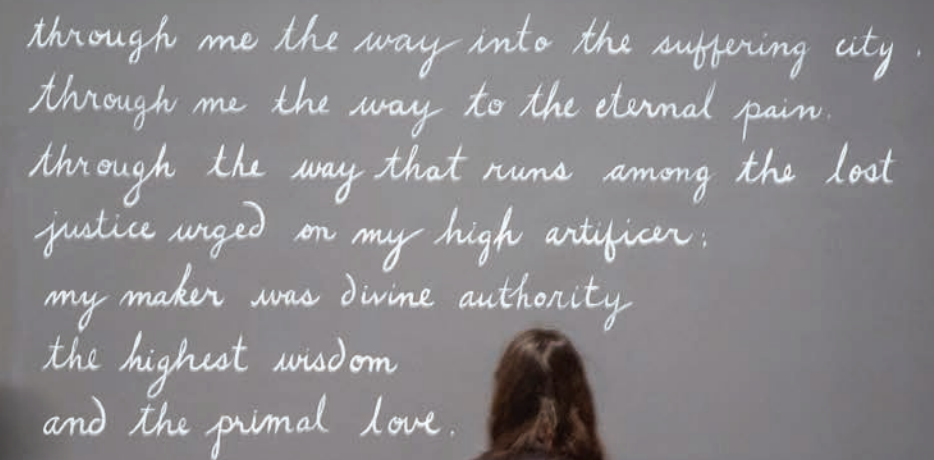 through me the way into the suffering city.
through me the way to the eternal pain.
through the way that runs among the lost
justice urged on my high artificer:
my maker was divine authority
the highest wisdom
and the primal love.